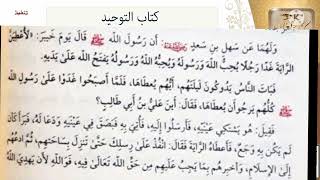 كتاب التوحيد
وَلَهُمَا عَن سَهلِ بنِ سَعدٍ أَن رَسُولَ اللَّه قَالَ يَومَ خَيبَرَ: «لَأُعطِيَنَّ
الرَّايَةَ غَدًا رَجُلًا يُحِبُّ اللَّهَ وَرَسُولَهُ وَيُحِبُّهُ اللَّهُ وَرَسُولُهُ يَفتَحُ اللَّهُ عَلَىٰ يَدَيهِ.
فَبَاتَ النَّاسُ يَدُوكُونَ لَيلَتَهُم، أَيُّهُم يُعطَاهَا، فَلَمَّا أَصبَحُوا غَدَوا عَلَىٰ رَسُولِ اللَّهِ
كُلُّهُم يَرجُو أَن يُعطَاهَا، فَقَالَ: أَينَ عَلِيُّ بنُ أَبِي طَالِبٍ؟
فَقِيلَ: هُوَ يَشتَكِي عَينَيهِ، فَأَرسَلُوا إِلَيهِ، فَأُتِيَ بِهِ فَبَصَقَ فِي عَينَيهِ وَدَعَا لَهُ، فَبَرَأَ كَأَن
لَم يَكُن بِهِ وَجَعٌ، فَأَعطَاهُ الرَّايَةَ فَقَالَ: انفُذ عَلَىٰ رِسلِكَ حَتَّىٰ تَنزِلَ بِسَاحَتِهِم، ثُمَّ ادعُهُم
إِلَىٰ الإِسلَامِ، وَأَخبِرهُم بِمَا يَجِبُ عَلَيهِم مِن حَقِّ اللَّهِ تَعَالَىٰ فِيهِ، فَوَاللَّهِ لَأَن يَهدِيَ اللَّهُ